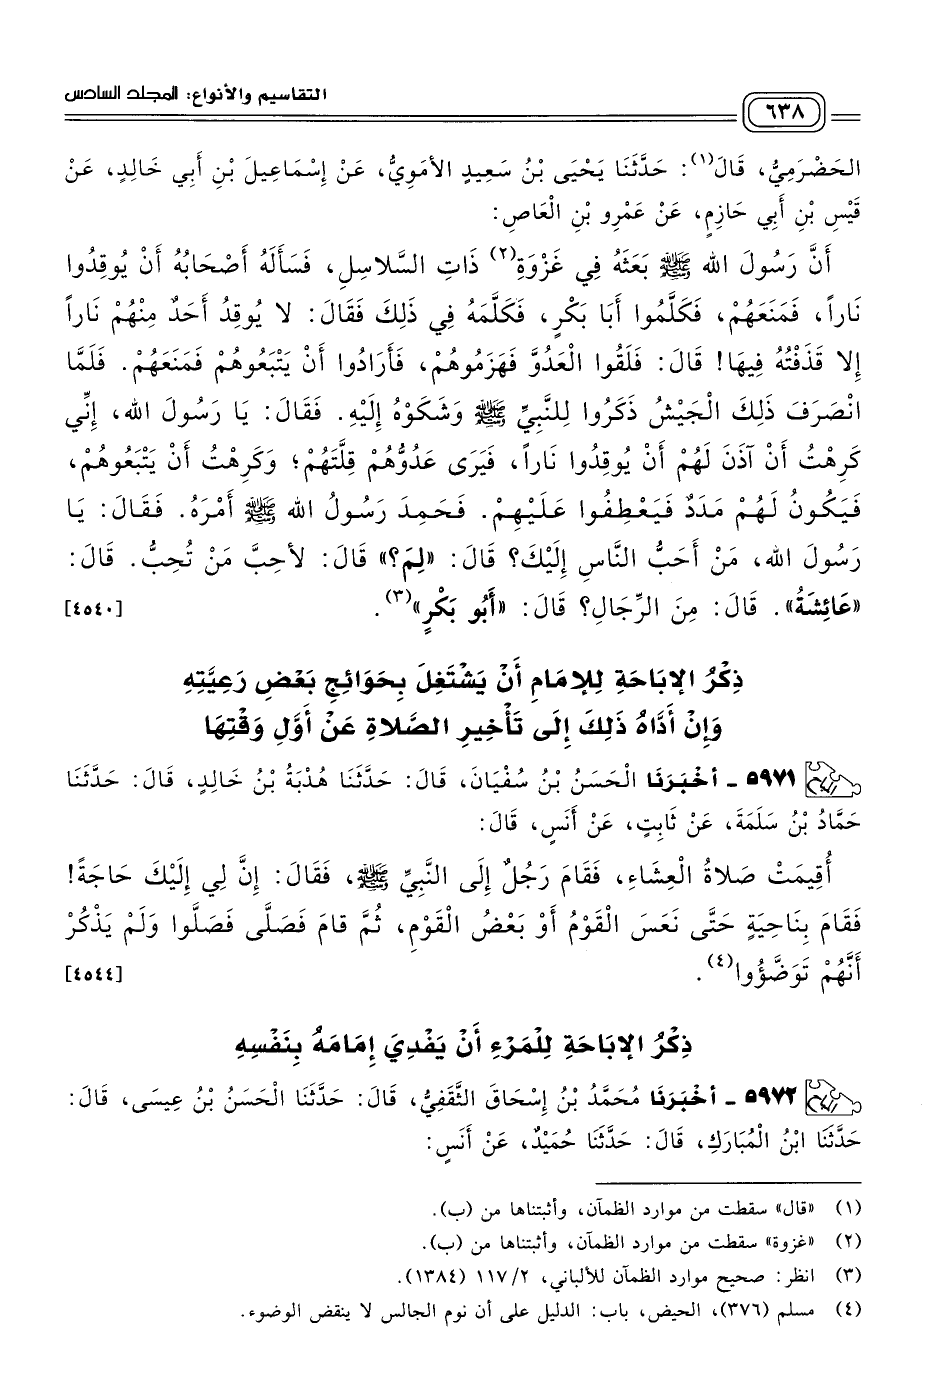 التقاسيم والأنواع: المجلد السادس
٦٣٨
الحَضْرَمِيُّ، قَالَ(١): حَدَّثَنَا يَحْيَى بْنُ سَعِيدٍ الأمَوِيُّ، عَنْ إِسْمَاعِيلَ بْنِ أَبِي خَالِدٍ، عَنْ
قَيْسِ بْنِ أَبِي حَازِمٍ، عَنْ عَمْرِو بْنِ الْعَاصِ:
أَنَّ رَسُولَ الله ﷺ بَعَثَهُ فِي غَزْوَةِ(٢) ذَاتِ السَّلاسِلِ، فَسَأَلَهُ أَصْحَابُهُ أَنْ يُوقِدُوا
نَاراً، فَمَنَعَهُمْ، فَكَلَّمُوا أَبَا بَكْرٍ، فَكَلَّمَهُ فِي ذَلِكَ فَقَالَ: لا يُوقِدُ أَحَدٌ مِنْهُمْ نَاراً
إِلا قَذَفْتُهُ فِيهَا! قَالَ: فَلَقُوا الْعَدُوَّ فَهَزَمُوهُمْ، فَأَرَادُوا أَنْ يَتْبَعُوهُمْ فَمَنَعَهُمْ. فَلَمَّا
انْصَرَفَ ذَلِكَ الْجَيْشُ ذَكَرُوا لِلنَّبِيِّ ﷺ وَشَكَوْهُ إِلَيْهِ. فَقَالَ: يَا رَسُولَ الله، إِنِّي
كَرِهْتُ أَنْ آذَنَ لَهُمْ أَنْ يُوقِدُوا نَاراً، فَيَرَى عَدُوُّهُمْ قِلَّتَهُمْ؛ وَكَرِهْتُ أَنْ يَتْبَعُوهُمْ،
فَيَكُونُ لَهُمْ مَدَدٌ فَيَعْطِفُوا عَلَيْهِمْ. فَحَمِدَ رَسُولُ الله ﷺ أَمْرَهُ. فَقَالَ: يَا
رَسُولَ الله، مَنْ أَحَبُّ النَّاسِ إِلَيْكَ؟ قَالَ: «لِمَ؟» قَالَ: لأحِبَّ مَنْ تُحِبُّ. قَالَ:
«عَائِشَةُ». قَالَ: مِنَ الرِّجَالِ؟ قَالَ: «أَبُو بَكْرٍ»(٣). [٤٥٤٠]
ذِكْرُ الإبَاحَةِ لِلإمَامِ أَنْ يَشْتَغِلَ بِحَوَائِجِ بَعْضِ رَعِيَّتِهِ
وَإِنْ أَدَّاهُ ذَلِكَ إِلَى تَأْخِيرِ الصَّلاةِ عَنْ أَوَّلِ وَقْتِهَا
٥٩٧١ - أخْبَرَنَا الْحَسَنُ بْنُ سُفْيَانَ، قَالَ: حَدَّثَنَا هُدْبَةُ بْنُ خَالِدٍ، قَالَ: حَدَّثَنَا
حَمَّادُ بْنُ سَلَمَةَ، عَنْ ثَابِتٍ، عَنْ أَنَسٍ، قَالَ:
أُقِيمَتْ صَلاةُ الْعِشَاءِ، فَقَامَ رَجُلٌ إِلَى النَّبِيِّ ﷺ، فَقَالَ: إِنَّ لِي إِلَيْكَ حَاجَةً!
فَقَامَ بِنَاحِيَةٍ حَتَّى نَعَسَ الْقَوْمُ أَوْ بَعْضُ الْقَوْمِ، ثُمَّ قامَ فَصَلَّى فَصَلَّوا وَلَمْ يَذْكُرْ
أَنَّهُمْ تَوَضَّؤُوا(٤). [٤٥٤٤]
ذِكْرُ الإبَاحَةِ لِلْمَرْءِ أَنْ يَفْدِيَ إِمَامَهُ بِنَفْسِهِ
٥٩٧٢ - أخْبَرَنَا مُحَمَّدُ بْنُ إِسْحَاقَ الثَّقَفِيُّ، قَالَ: حَدَّثَنَا الْحَسَنُ بْنُ عِيسَى، قَالَ:
حَدَّثَنَا ابْنُ الْمُبَارَكِ، قَالَ: حَدَّثَنَا حُمَيْدٌ، عَنْ أَنَسٍ:
(١) «قال» سقطت من موارد الظمآن، وأثبتناها من (ب).
(٢) «غزوة» سقطت من موارد الظمآن، وأثبتناها من (ب).
(٣) انظر: صحيح موارد الظمآن للألباني، ١١٧/٢ (١٣٨٤).
(٤) مسلم (٣٧٦)، الحيض، باب: الدليل على أن نوم الجالس لا ينقض الوضوء.